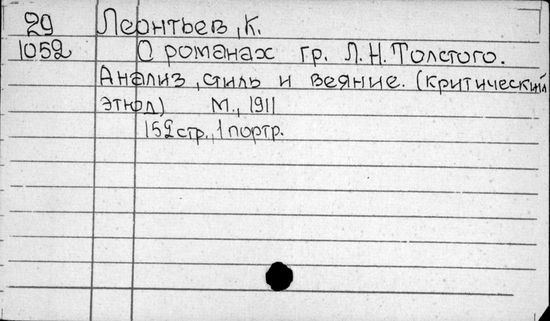 29 Леонтьев, К.
1052 О романах гр. Л.Н.Толстого.
Анализ, стиль и веяние. (критический
этюд) М., 1911
152стр., 1 портр.